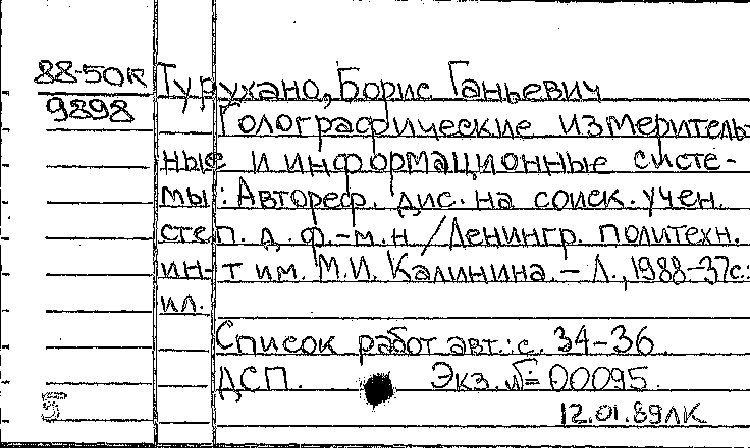 88-50к
9898
Турухано, Борис Ганьевич
Голографические измеритель-
ные и информационные систе-
мы: Автореф. дис. на соиск. учен.
степ. д. ф.-м.н / Ленингр. политехн.
ин-т им. М.И. Калинина. - Л., 1988-37с.:
ил.
Список работ авт.: с. 34-36.
ДСП. Экз. № 00095.
12.01.89ЛК